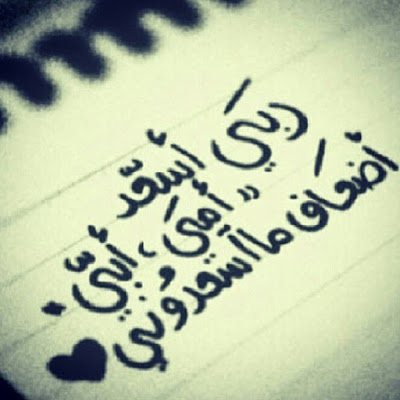 ربيَ أسعّد
” أميَ ، أبيّ “
أضعَاف ما آسعدوُني ♥